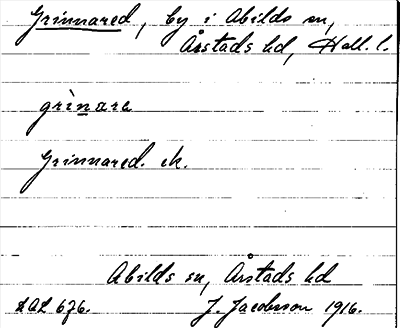 Grinnared, by i Abilds sn,
Årstads hd, Hall. l.
grìnare
Grinnared. ek.
Abilds sn, Årstads hd
LAL 676. J. Jacobsson 1916.